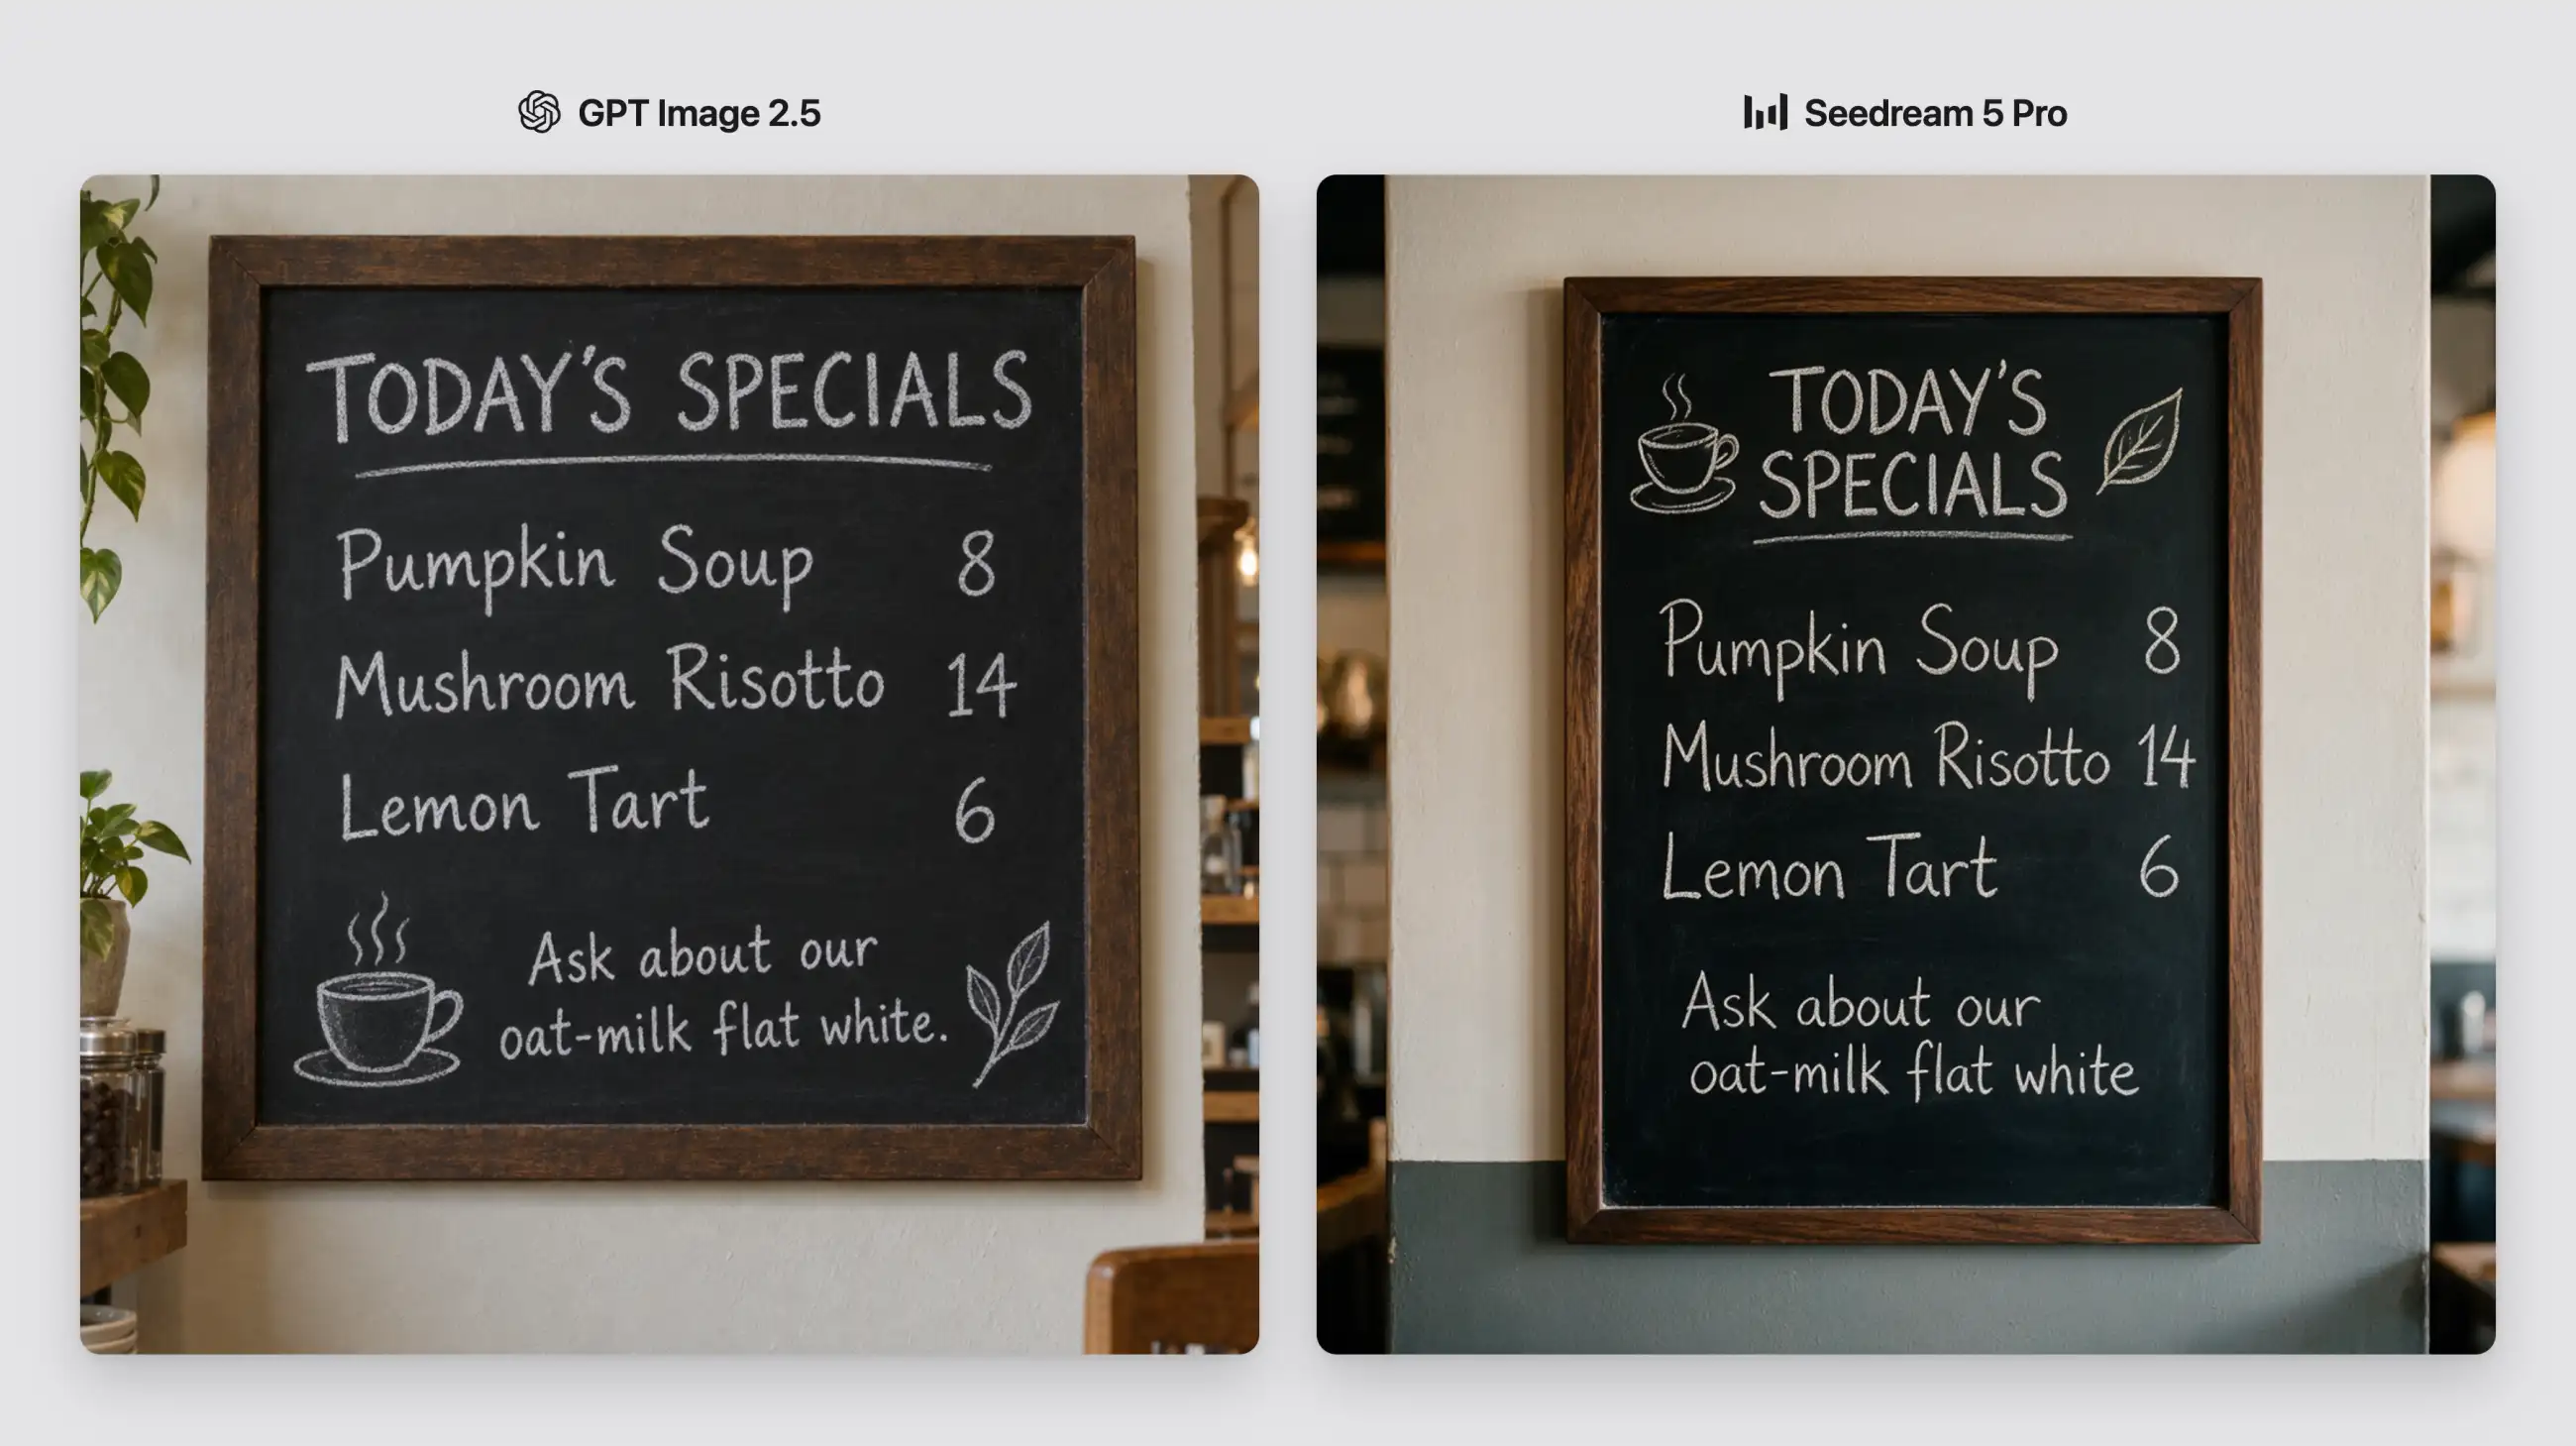 GPT Image 2.5
TODAY'S SPECIALS
Pumpkin Soup 8
Mushroom Risotto 14
Lemon Tart 6
Ask about our
oat-milk flat white.
Seedream 5 Pro
TODAY'S
SPECIALS
Pumpkin Soup 8
Mushroom Risotto 14
Lemon Tart 6
Ask about our
oat-milk flat white